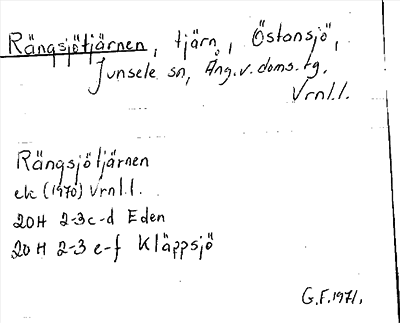 Rängsjötjärnen, tjärn, Östansjö,
Junsele sn, Ång.v.doms.tg.
Vrnl.l.
Rängsjötjärnen
ek (1970) Vrnl.l.
20H 2-3c-d Eden
20H 2-3 e-f Kläppsjö
G.F.1971.